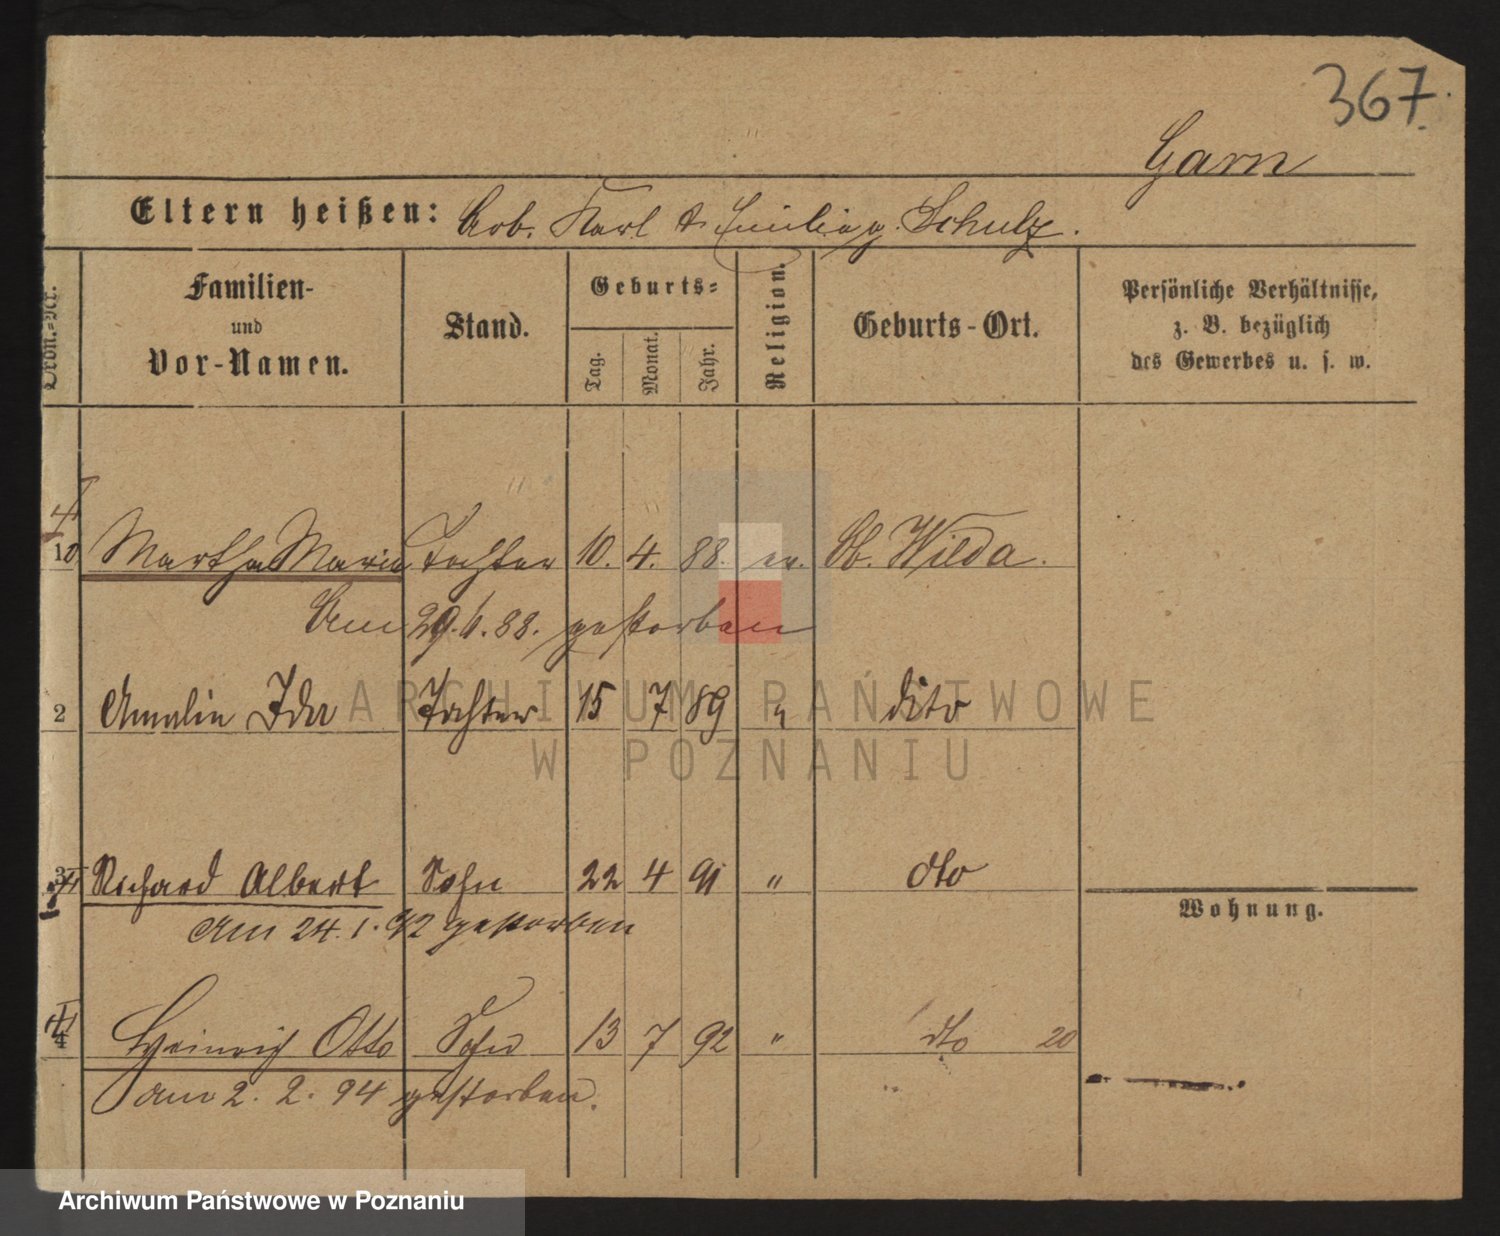 367.
Garn
Eltern heißen: Arb. Karl & Emilie g. Schulz.
Ordn.-Nr.
Familien-
und
Vor-Namen.
Stand.
Geburts-
Tag.
Monat.
Jahr.
Religion.
Geburts-Ort.
Persönliche Verhältnisse,
z. B. bezüglich
des Gewerbes u. s. w.
10 Martha Maria Tochter 10. 4. 88. ev. Ob. Wilda.
Am 29.6.88. gestorben
2 Amalie Ida Tochter 15 7 89 " dito
3 Richard Albert Sohn 22 4 91 " dto
Am 24.1.92 gestorben
Wohnung.
4 Heinrich Otto Sohn 13 7 92 " dto 20
am 2. 2. 94 gestorben.
ARCHIWUM PAŃSTWOWE
W POZNANIU
Archiwum Państwowe w Poznaniu